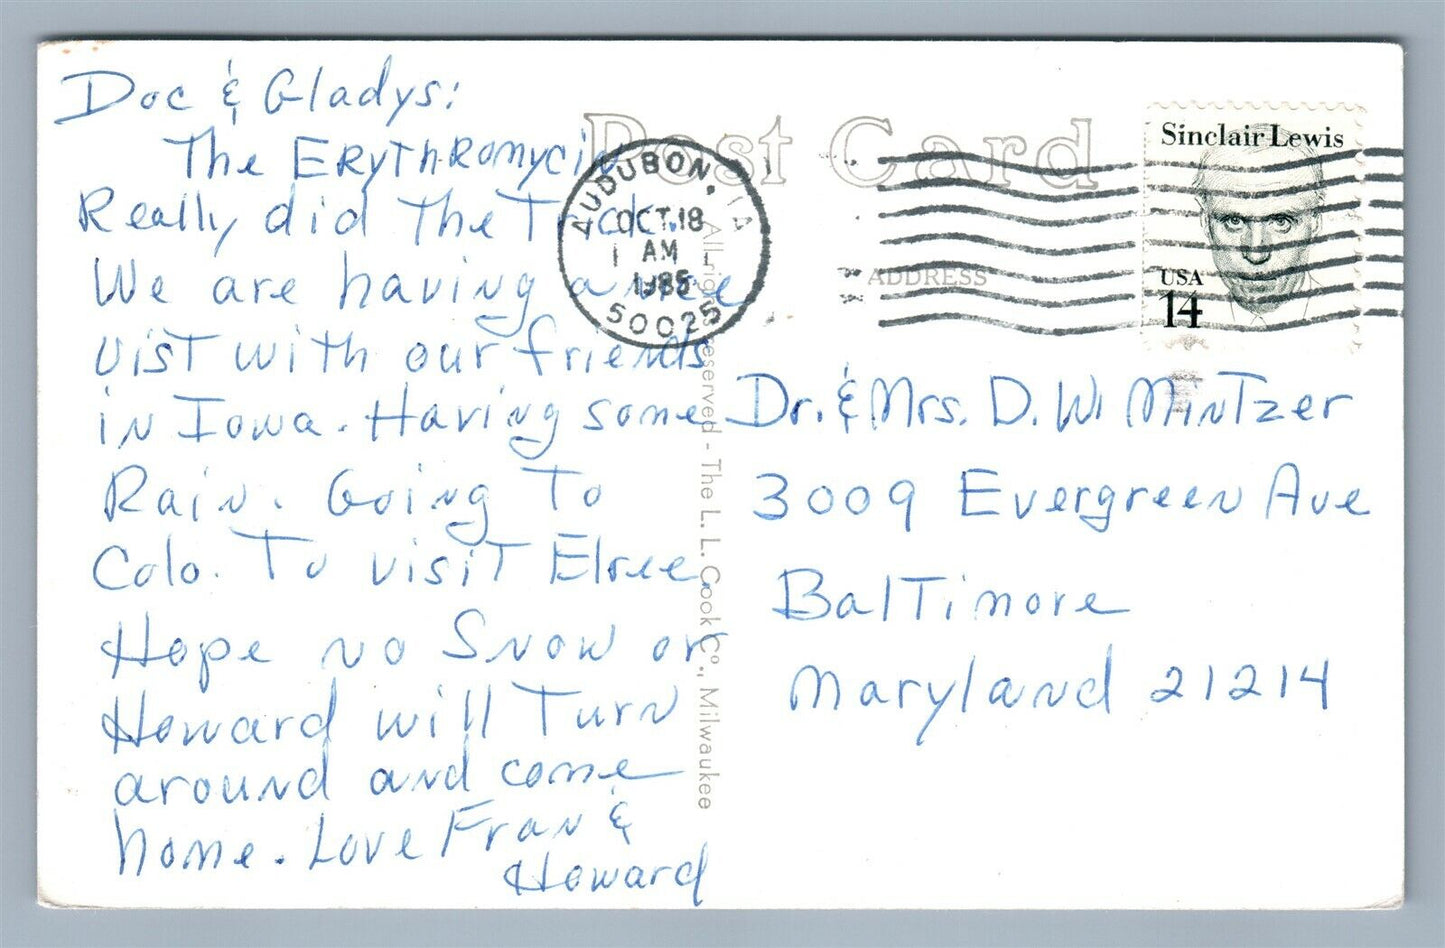 Doc & Gladys:
The Erythromycin
Really did the Trick.
We are having a nice
vist with our friends
in Iowa. Having some
Rain. Going To
Colo. To visit
Hope no Snow or
Howard will Turn
around and come
home. Love Fran &
Howard
Post Card
AUDUBON, IA
OCT 18
AM
1985
50025
Sinclair Lewis
USA
14
ADDRESS
Dr. & Mrs. D. W. Mintzer
3009 Evergreen Ave
Baltimore
Maryland 21214
All rights reserved - The L. L. Cook Co., Milwaukee